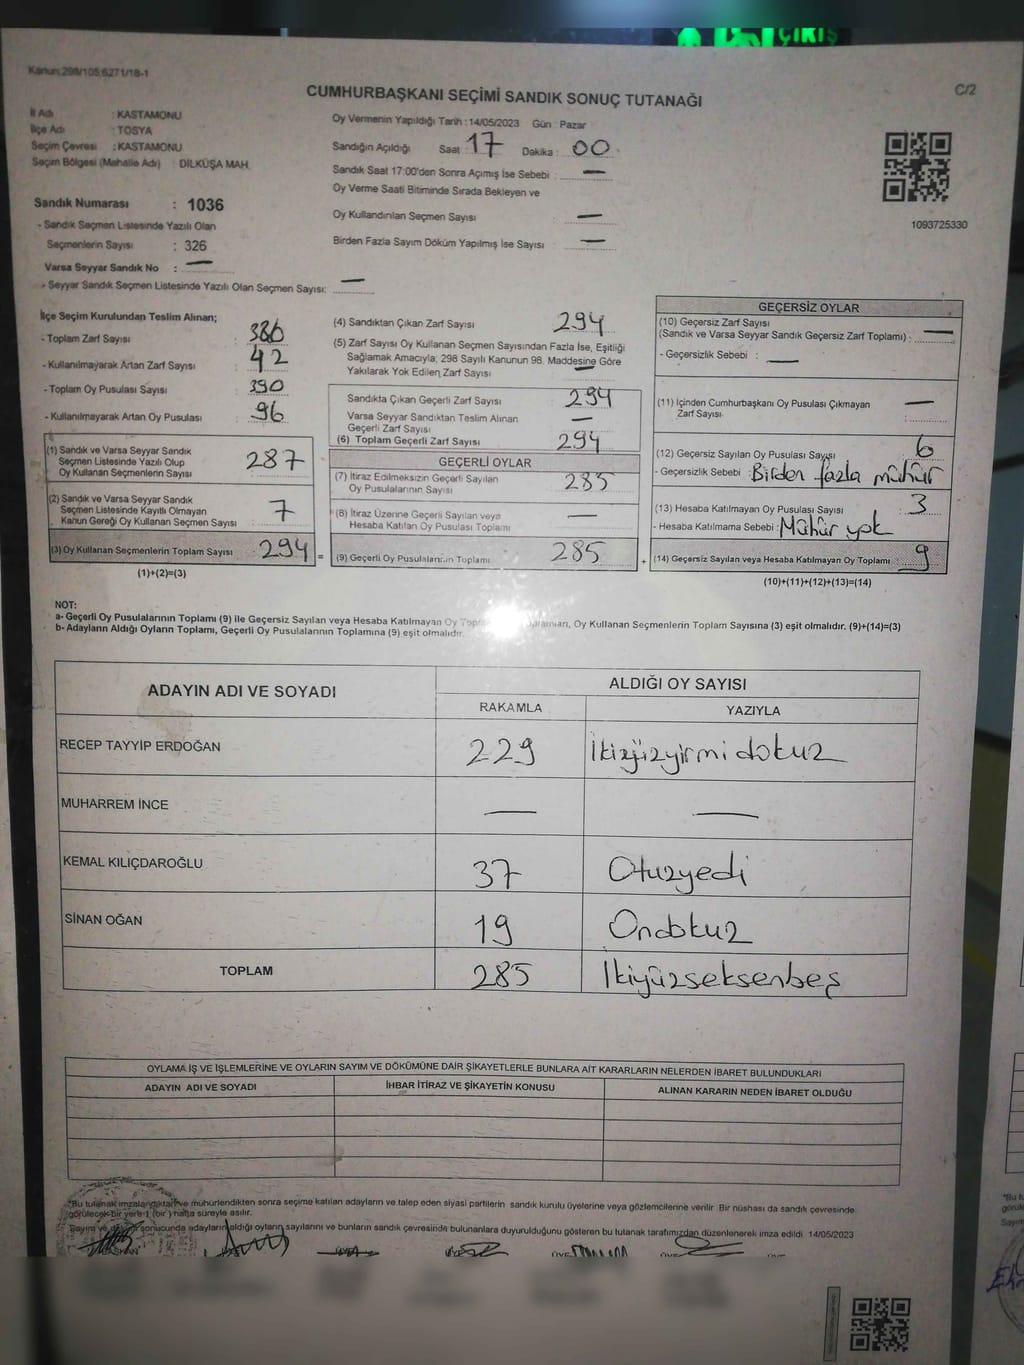 ÇIKIŞ
Kanun:298/105;6271/18-1
C/2
CUMHURBAŞKANI SEÇİMİ SANDIK SONUÇ TUTANAĞI
İl Adı : KASTAMONU
İlçe Adı : TOSYA
Seçim Çevresi : KASTAMONU
Seçim Bölgesi (Mahalle Adı) : DİLKÜŞA MAH.
Sandık Numarası : 1036
- Sandık Seçmen Listesinde Yazılı Olan
Seçmenlerin Sayısı : 326
Varsa Seyyar Sandık No : —
- Seyyar Sandık Seçmen Listesinde Yazılı Olan Seçmen Sayısı: —
Oy Vermenin Yapıldığı Tarih : 14/05/2023 Gün : Pazar
Sandığın Açıldığı Saat 17 Dakika : 00
Sandık Saat 17:00'den Sonra Açımış İse Sebebi : —
Oy Verme Saati Bitiminde Sırada Bekleyen ve
Oy Kullandırılan Seçmen Sayısı —
Birden Fazla Sayım Döküm Yapılmış İse Sayısı —
1093725330
İlçe Seçim Kurulundan Teslim Alınan;
- Toplam Zarf Sayısı : 336
- Kullanılmayarak Artan Zarf Sayısı : 42
- Toplam Oy Pusulası Sayısı : 390
- Kullanılmayarak Artan Oy Pusulası : 96
(1) Sandık ve Varsa Seyyar Sandık
Seçmen Listesinde Yazılı Olup
Oy Kullanan Seçmenlerin Sayısı : 287
(2) Sandık ve Varsa Seyyar Sandık
Seçmen Listesinde Kayıtlı Olmayan
Kanun Gereği Oy Kullanan Seçmen Sayısı : 7
(3) Oy Kullanan Seçmenlerin Toplam Sayısı : 294 =
(1)+(2)=(3)
(4) Sandıktan Çıkan Zarf Sayısı 294
(5) Zarf Sayısı Oy Kullanan Seçmen Sayısından Fazla İse, Eşitliği
Sağlamak Amacıyla; 298 Sayılı Kanunun 98. Maddesine Göre
Yakılarak Yok Edilen Zarf Sayısı —
Sandıkta Çıkan Geçerli Zarf Sayısı 294
Varsa Seyyar Sandıktan Teslim Alınan
Geçerli Zarf Sayısı —
(6) Toplam Geçerli Zarf Sayısı 294
GEÇERLİ OYLAR
(7) İtiraz Edilmeksizin Geçerli Sayılan
Oy Pusulalarının Sayısı 285
(8) İtiraz Üzerine Geçerli Sayılan veya
Hesaba Katılan Oy Pusulası Toplamı —
(9) Geçerli Oy Pusulalarının Toplamı 285 +
GEÇERSİZ OYLAR
(10) Geçersiz Zarf Sayısı
(Sandık ve Varsa Seyyar Sandık Geçersiz Zarf Toplamı) : —
- Geçersizlik Sebebi : —
(11) İçinden Cumhurbaşkanı Oy Pusulası Çıkmayan
Zarf Sayısı —
(12) Geçersiz Sayılan Oy Pusulası Sayısı 6
- Geçersizlik Sebebi : Birden fazla mühür
(13) Hesaba Katılmayan Oy Pusulası Sayısı : 3
- Hesaba Katılmama Sebebi : Mühür yok
(14) Geçersiz Sayılan veya Hesaba Katılmayan Oy Toplamı : 9
(10)+(11)+(12)+(13)=(14)
NOT:
a- Geçerli Oy Pusulalarının Toplamı (9) ile Geçersiz Sayılan veya Hesaba Katılmayan Oy Oy Kullanan Seçmenlerin Toplam Sayısına (3) eşit olmalıdır. (9)+(14)=(3)
b- Adayların Aldığı Oyların Toplamı, Geçerli Oy Pusulalarının Toplamına (9) eşit olmalıdır.
ADAYIN ADI VE SOYADI ALDIĞI OY SAYISI
RAKAMLA YAZIYLA
RECEP TAYYİP ERDOĞAN 229 İkiyüzyirmidokuz
MUHARREM İNCE — —
KEMAL KILIÇDAROĞLU 37 Otuzyedi
SİNAN OĞAN 19 Ondokuz
TOPLAM 285 İkiyüzseksenbeş
OYLAMA İŞ VE İŞLEMLERİNE VE OYLARIN SAYIM VE DÖKÜMÜNE DAİR ŞİKAYETLERLE BUNLARA AİT KARARLARIN NELERDEN İBARET BULUNDUKLARI
ADAYIN ADI VE SOYADI İHBAR İTİRAZ VE ŞİKAYETİN KONUSU ALINAN KARARIN NEDEN İBARET OLDUĞU
*Bu tutanak imzalandıktan ve mühürlendikten sonra seçime katılan adayların ve talep eden siyasi partilerin sandık kurulu üyelerine veya gözlemcilerine verilir. Bir nüshası da sandık çevresinde
görülecek bir yere 1 (bir ) hafta süreyle asılır.
Sayım ve döküm sonucunda adayların aldığı oyların sayılarını ve bunların sandık çevresinde bulunanlara duyurulduğunu gösteren bu tutanak tarafımızdan düzenlenerek imza edildi. 14/05/2023
BAŞKAN